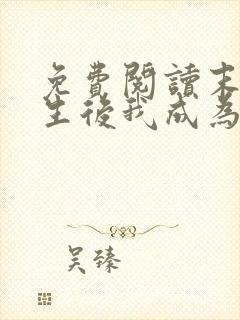 免費閱讀末
生後我成為
吳臻